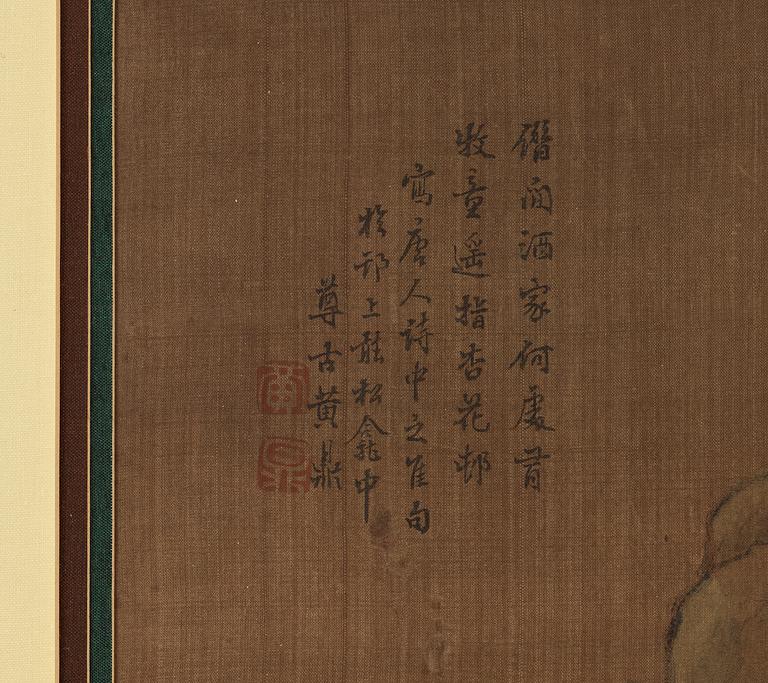 借问酒家何處有
牧童遥指杏花邨
寫唐人詩中之佳句
於邗上龍松龕中
尊古黃鼎
黃
鼎